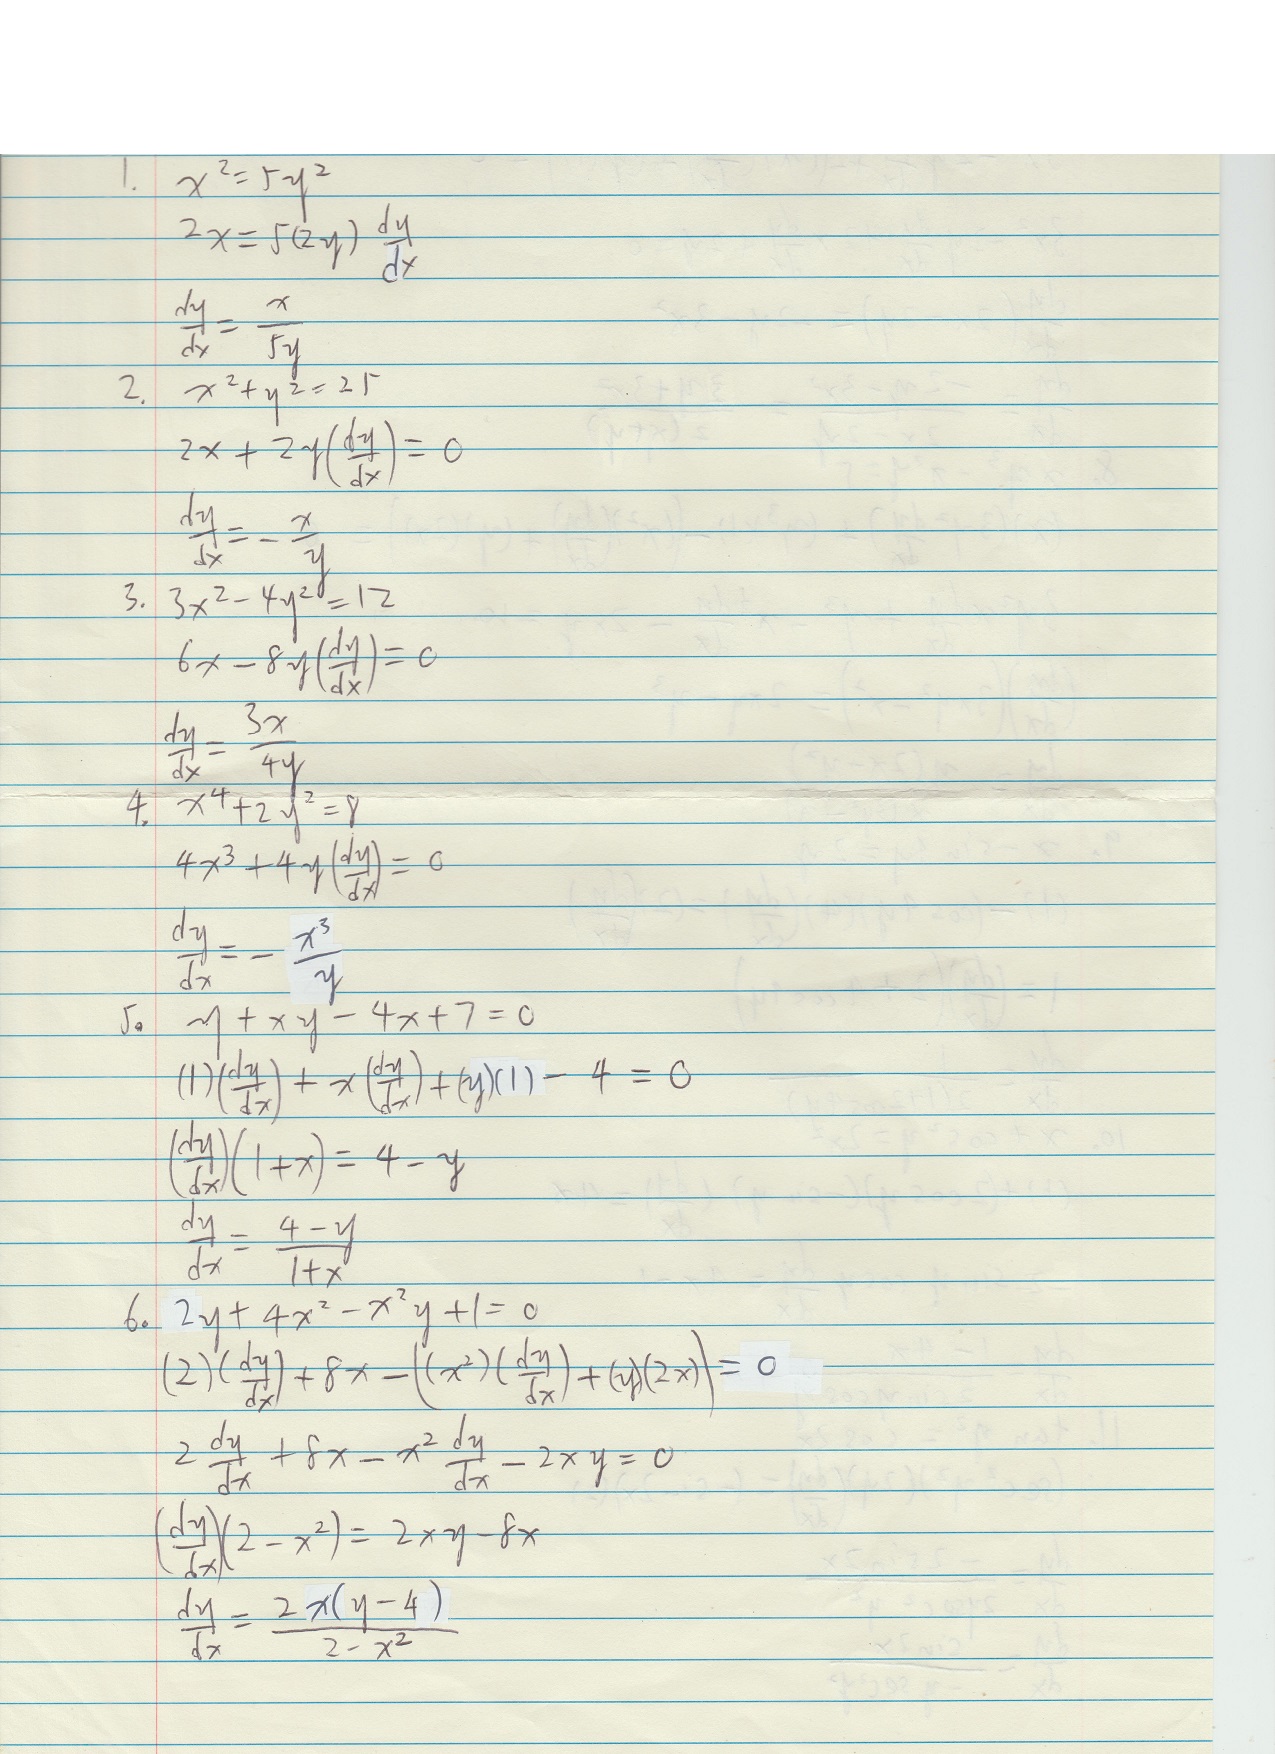 1. x² = 5y²
2x = 5(2y) dy/dx
dy/dx = x/5y
2. x² + y² = 25
2x + 2y(dy/dx) = 0
dy/dx = - x/y
3. 3x² - 4y² = 12
6x - 8y(dy/dx) = 0
dy/dx = 3x/4y
4. x⁴ + 2y² = 8
4x³ + 4y(dy/dx) = 0
dy/dx = - x³/y
5. y + xy - 4x + 7 = 0
(1)(dy/dx) + x(dy/dx) + (y)(1) - 4 = 0
(dy/dx)(1+x) = 4 - y
dy/dx = (4 - y)/(1+x)
6. 2y + 4x² - x²y + 1 = 0
(2)(dy/dx) + 8x - ((x²)(dy/dx) + (y)(2x)) = 0
2 dy/dx + 8x - x² dy/dx - 2xy = 0
(dy/dx)(2 - x²) = 2xy - 8x
dy/dx = 2x(y-4)/(2 - x²)